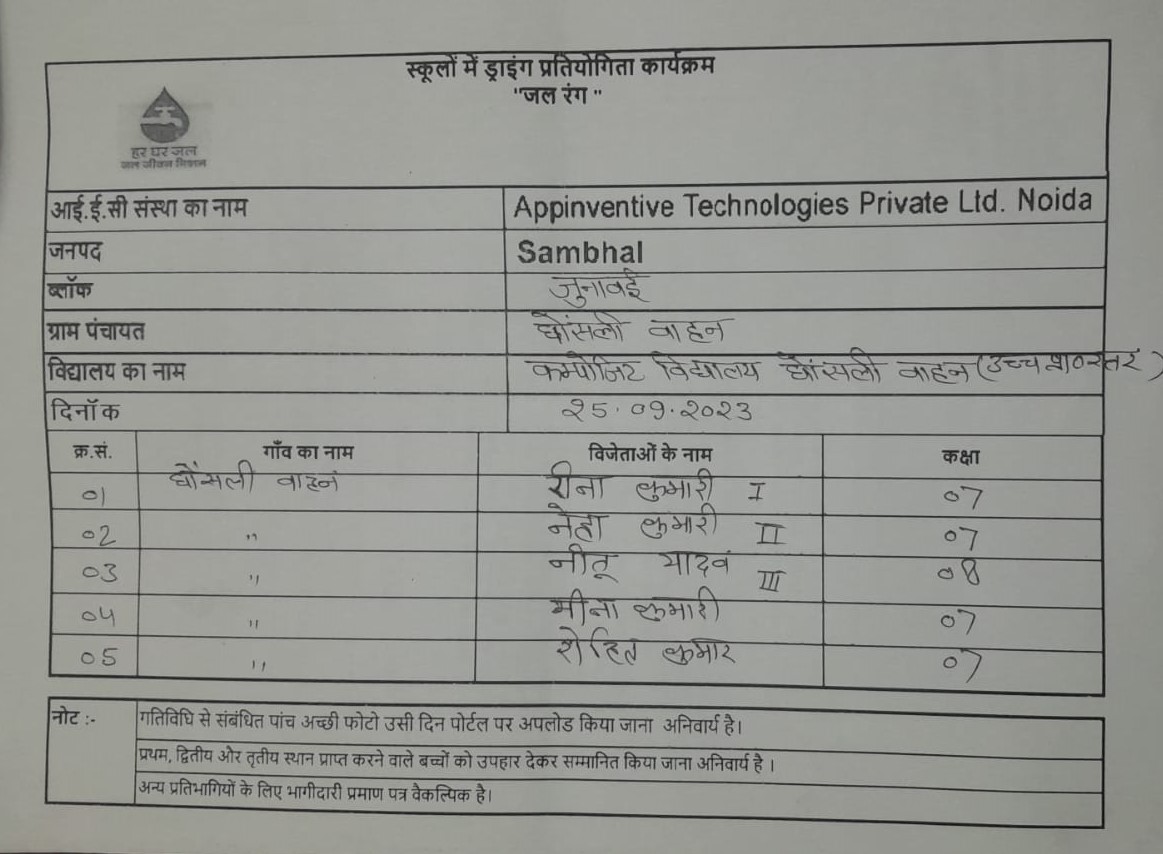 स्कूलों में ड्राइंग प्रतियोगिता कार्यक्रम
"जल रंग "
हर घर जल
जल जीवन मिशन
आई.ई.सी संस्था का नाम Appinventive Technologies Private Ltd. Noida
जनपद Sambhal
ब्लॉक जुनावई
ग्राम पंचायत घोंसली वाहन
विद्यालय का नाम कम्पोजिट विद्यालय घोंसली वाहन (उच्च प्रा० स्तर)
दिनॉक 25.09.2023
क्र.सं. गाँव का नाम विजेताओं के नाम कक्षा
01 घोंसली वाहन रीना कुमारी I 07
02 " नेहा कुमारी II 07
03 " नीतू यादव III 08
04 " मीना कुमारी 07
05 " रोहित कुमार 07
नोट :- गतिविधि से संबंधित पांच अच्छी फोटो उसी दिन पोर्टल पर अपलोड किया जाना अनिवार्य है।
प्रथम, द्वितीय और तृतीय स्थान प्राप्त करने वाले बच्चों को उपहार देकर सम्मानित किया जाना अनिवार्य है ।
अन्य प्रतिभागियों के लिए भागीदारी प्रमाण पत्र वैकल्पिक है।